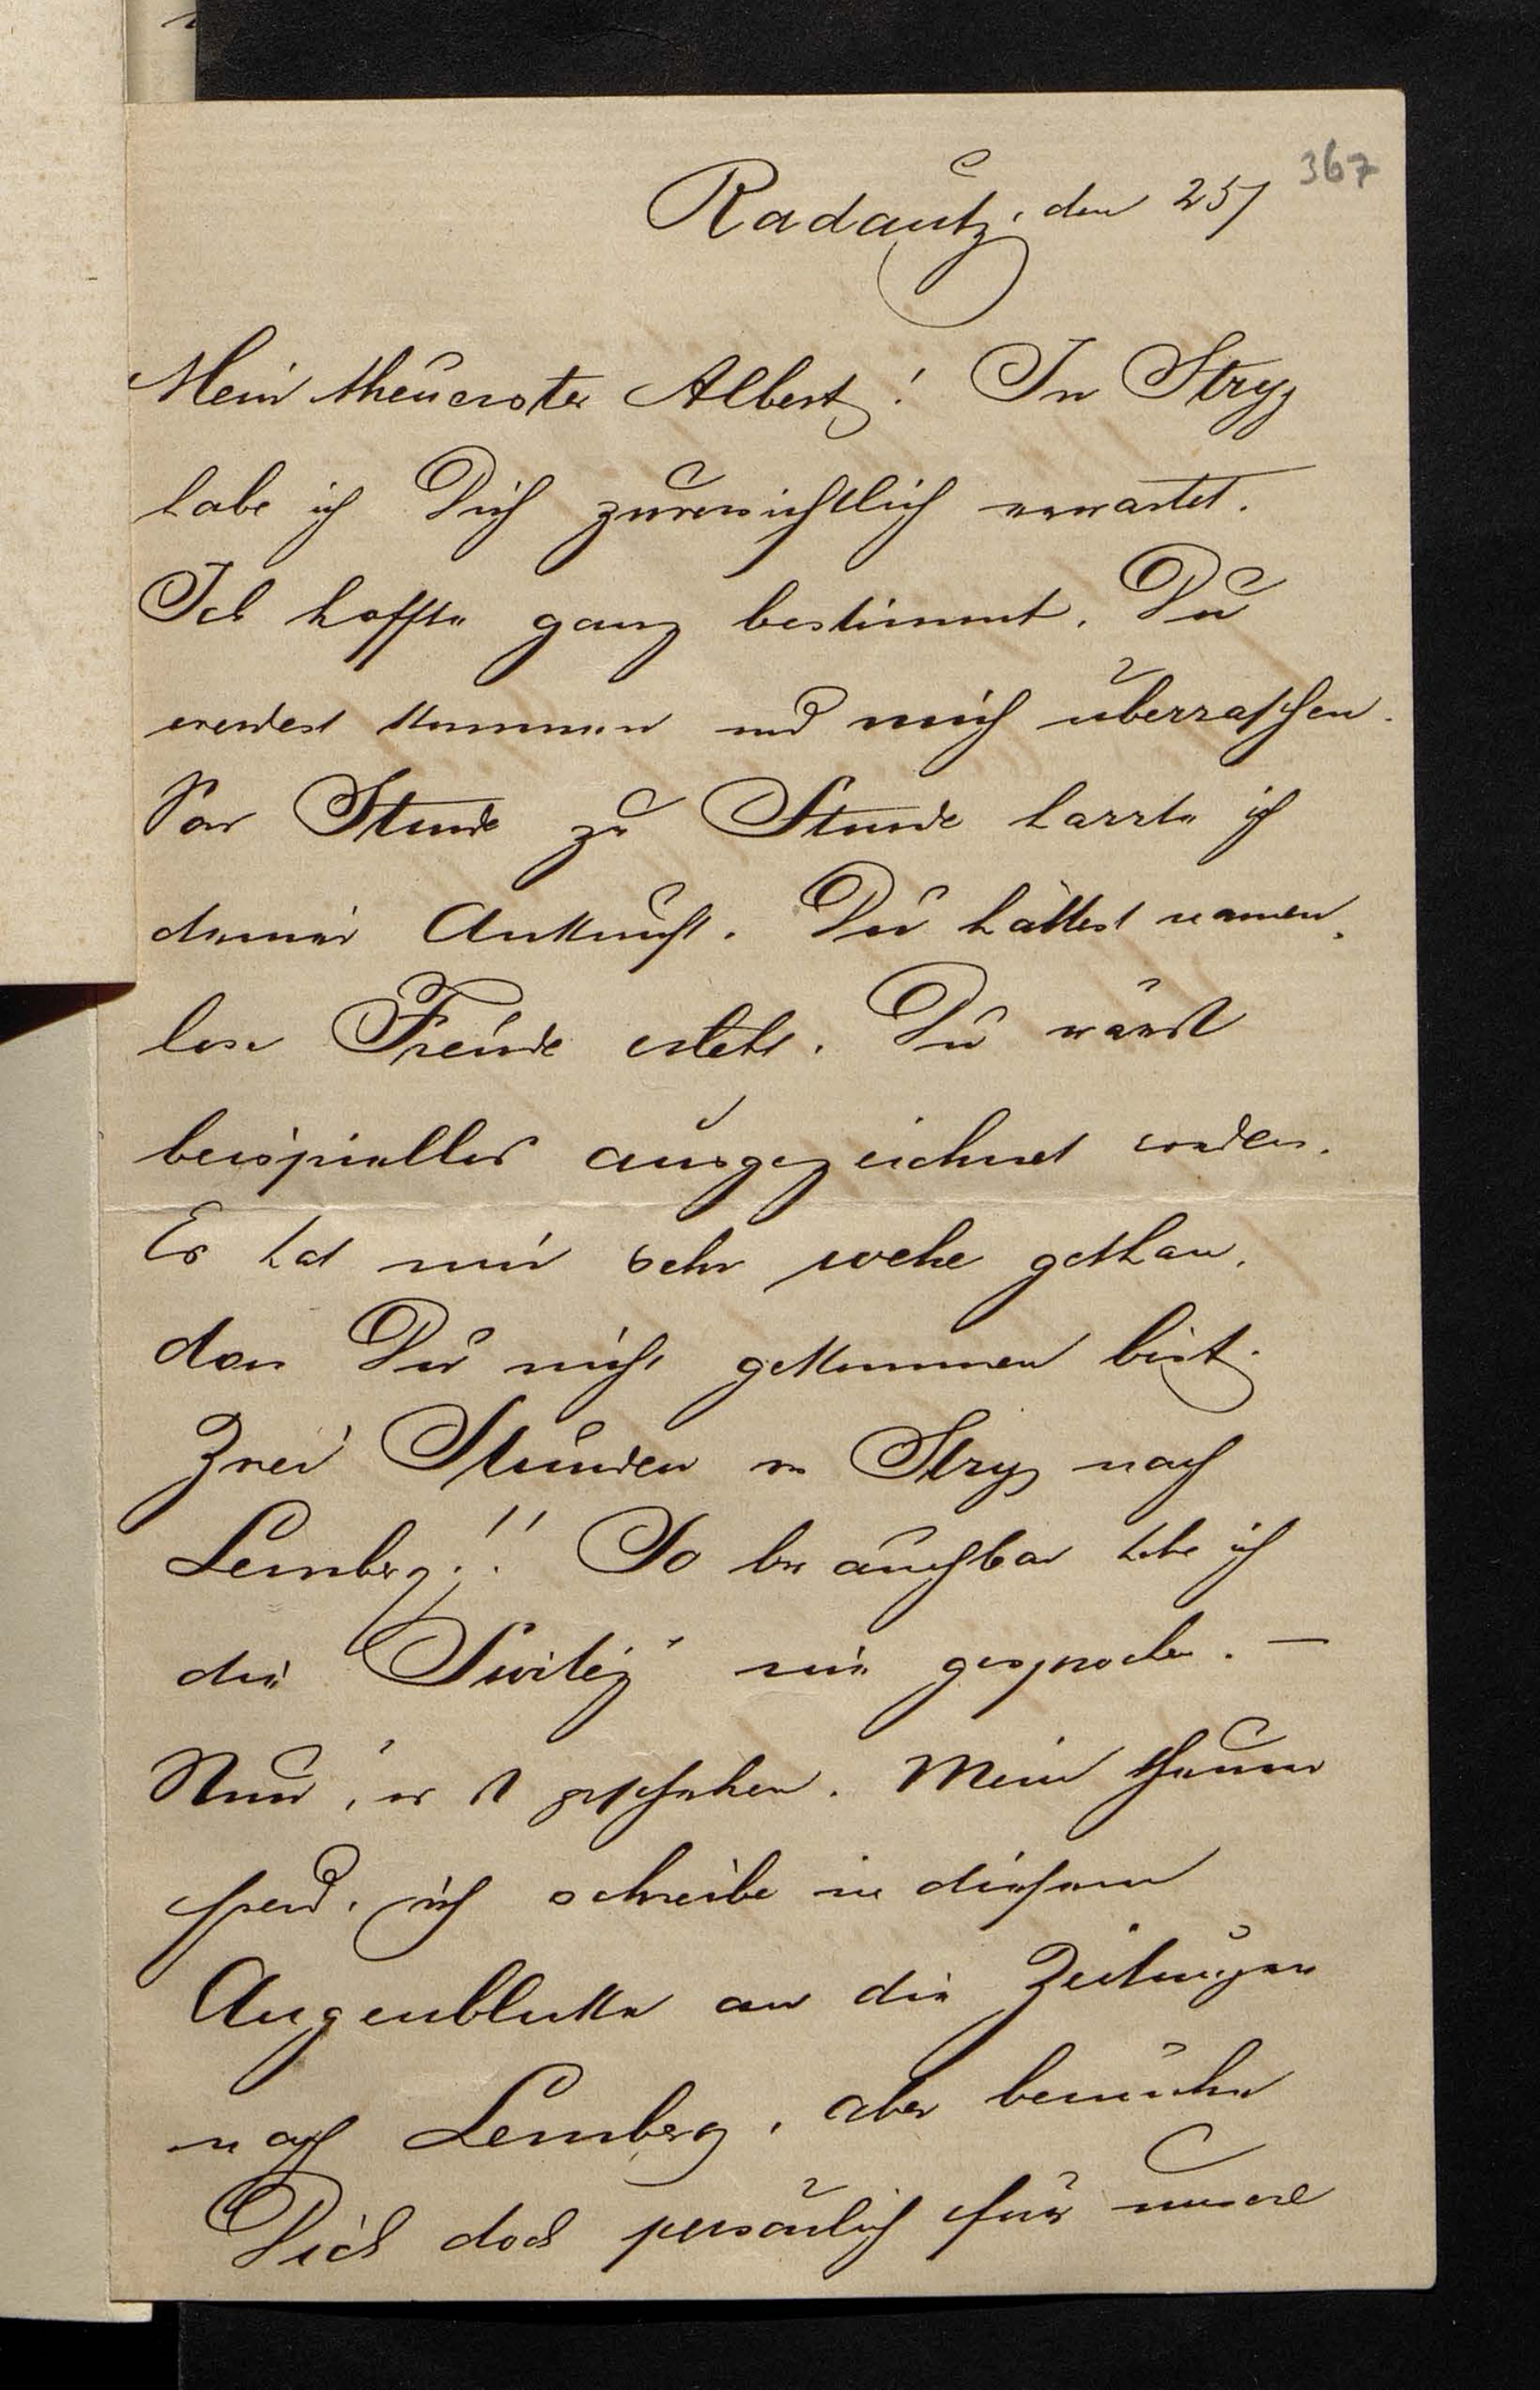 367
Radautz, den 25/
Mein theuerster Albert! In Stryj
habe ich Dich zuversichtlich erwartet.
Ich hoffte ganz bestimmt, Du
werdest kommen und mich überraschen.
Von Stunde zu Stunde harrte ich
deiner Ankunft. Du hättest namen-
lose Freude erlebt. Du wärst
beispiellos ausgezeichnet worden.
Es hat mir sehr wehe gethan,
dass Du nicht gekommen bist.
Zwei Stunden von Stryj nach
Lemberg!! So habe ich
die nie gesprochen. —
Nun, es ist geschehen. Mein theurer
Freund, ich schreibe in diesem
Augenblicke an die Zeitungen
nach Lemberg, aber bemühe
Dich doch persönlich für unsere